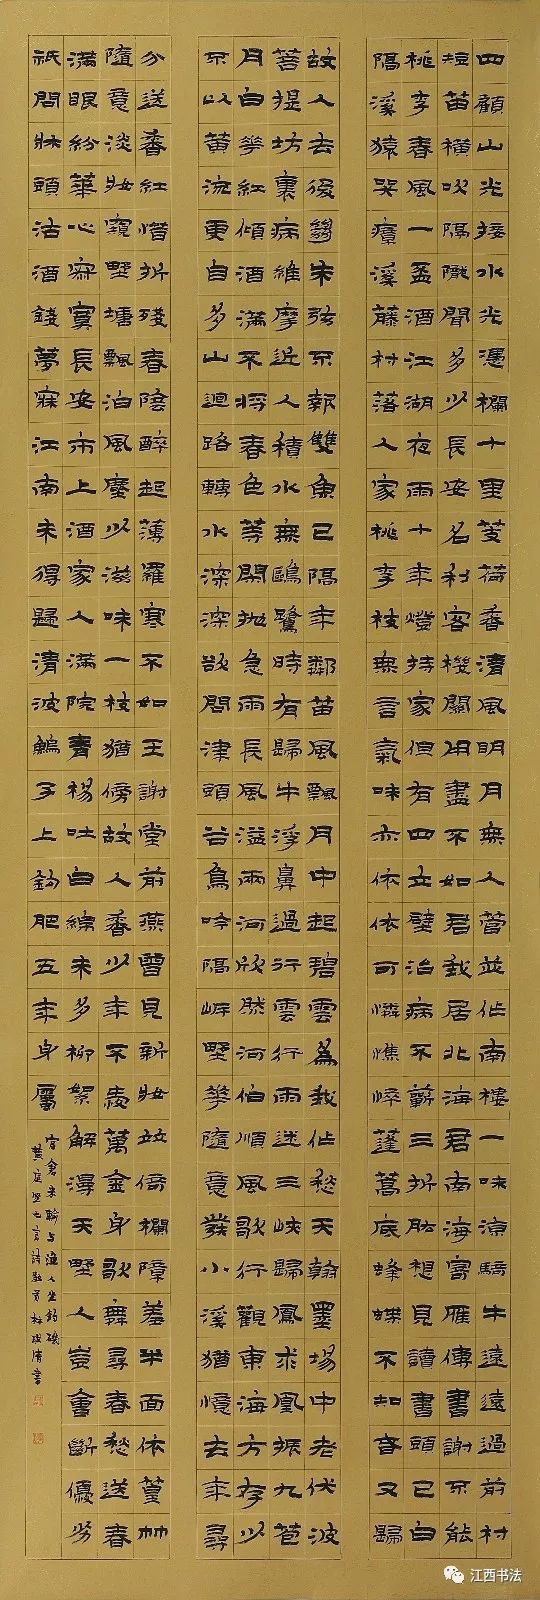 四顧山光接水光憑欄十里芰荷香清風明月無人管並作南樓一味涼騎牛遠遠過前村
短笛橫吹隔隴聞多少長安名利客機關用盡不如君我居北海君南海寄雁傳書謝不能
桃李春風一盃酒江湖夜雨十年燈持家但有四立壁治病不蘄三折肱想見讀書頭已白
隔溪猿哭瘴溪藤村落人家桃李枝無言氣味亦依依可憐憔悴蓬蒿底蜂蝶不知春又歸
故人去後絕朱弦不報雙魚已隔年鄰笛風飄月中起碧雲為我作愁天翰墨場中老伏波
菩提坊裏病維摩近人積水無鷗鷺時有歸牛浮鼻過行雲行雨迷三峽歸鳳求凰振九苞
月白花紅傾酒滿不將春色等閑拋急雨長風溢兩河欣然河伯順風歌行觀東海方存少
不以黃流更自多山迴路轉水深深欲問津頭谷鳥吟隔岸野花隨意發小溪猶憶去年尋
分送香紅惜折殘春陰醉起薄羅寒不如王謝堂前燕曾見新妝並倚欄障羞半面依篁竹
隨意淡妝窺野塘飄泊風塵少滋味一枝猶傍故人香少年不萬金身歌舞尋春愁送春
滿眼紛華心寂寞長安市上酒家人滿院青楊吐白綿未多柳絮解漫天野人豈會斷優劣
祇問牀頭沽酒錢夢寐江南未得歸清波鱸子上鉤肥五年身屬
官倉米輸與漁人坐釣磯
黃庭堅七言詩數首林書
江西书法